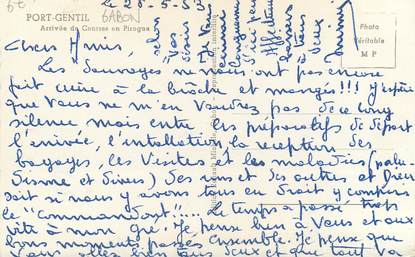 6€
Le 28-5-53
PORT-GENTIL GABON
Arrivée de Courses en Pirogue
Photo
Véritable
M P
Chers Amis,
Les Sauvages ne nous ont pas encore
fait cuire à la broche et mangés!!! J'espère
que Vous ne m'en Voudrez pas de ce long
silence mais entre les préparatifs de départ
l'arrivée, l'installation la réception des
bagages, les Visites et les maladies (palu-
disme et divers) des uns et des autres et Dieu
sait si nous y avons tous eu droit y compris
le "Commandant"!... Le temps a passé très
vite à mon gré. Je pense bien à Vous et aux
bons moments passés ensemble. Je pense que
Vous allez bien tous deux et que tout va
selon
Vos
désirs
Je Vous